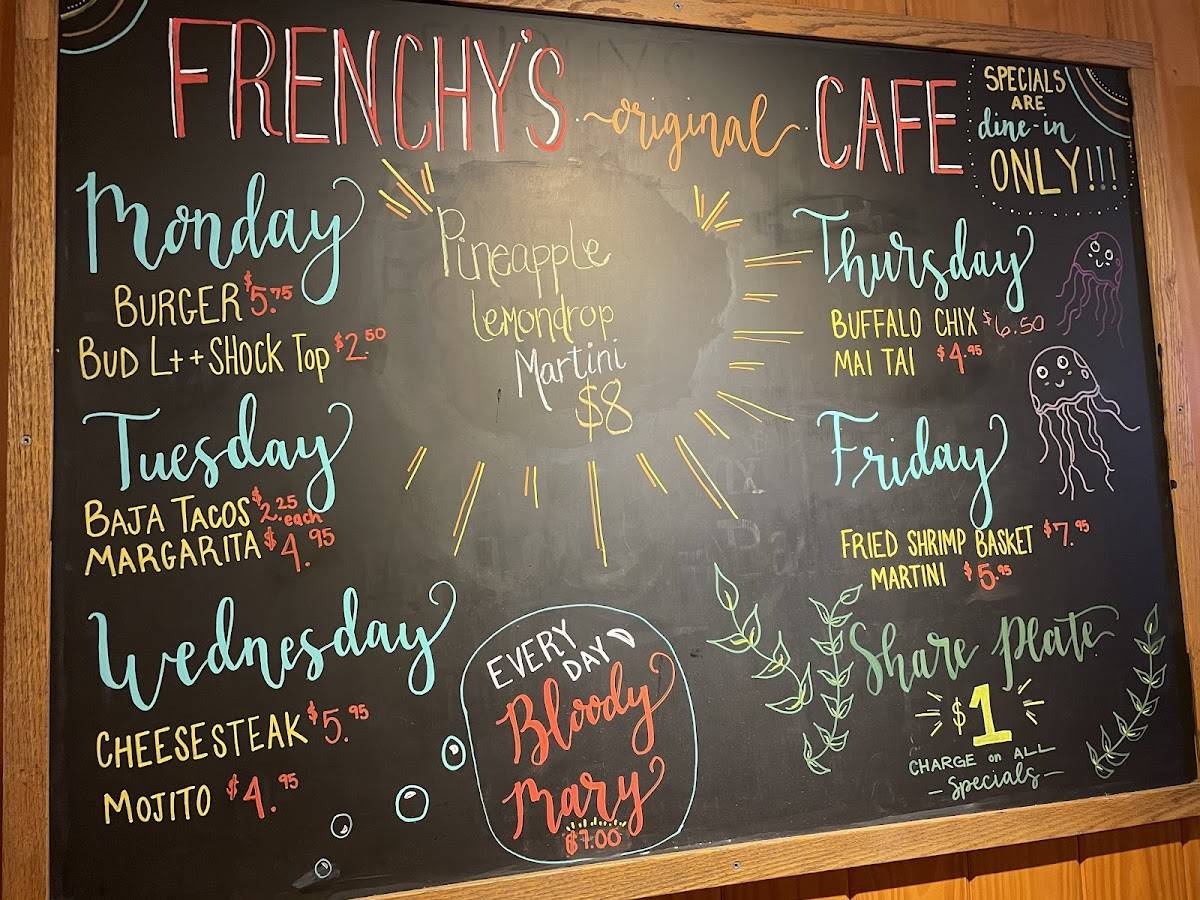 FRENCHY'S original CAFE
SPECIALS
ARE
dine-in
ONLY!!!
Monday
BURGER $5.75
BUD LT++SHOCK TOP $2.50
Tuesday
BAJA TACOS $2.25 each
MARGARITA $4.95
Wednesday
CHEESESTEAK $5.95
MOJITO $4.95
Pineapple
Lemondrop
Martini
$8
EVERY
DAY
Bloody
Mary
$7.00
Thursday
BUFFALO CHIX $6.50
MAI TAI $4.95
Friday
FRIED SHRIMP BASKET $7.95
MARTINI $5.95
Share Plate
$1
CHARGE on ALL
-Specials-